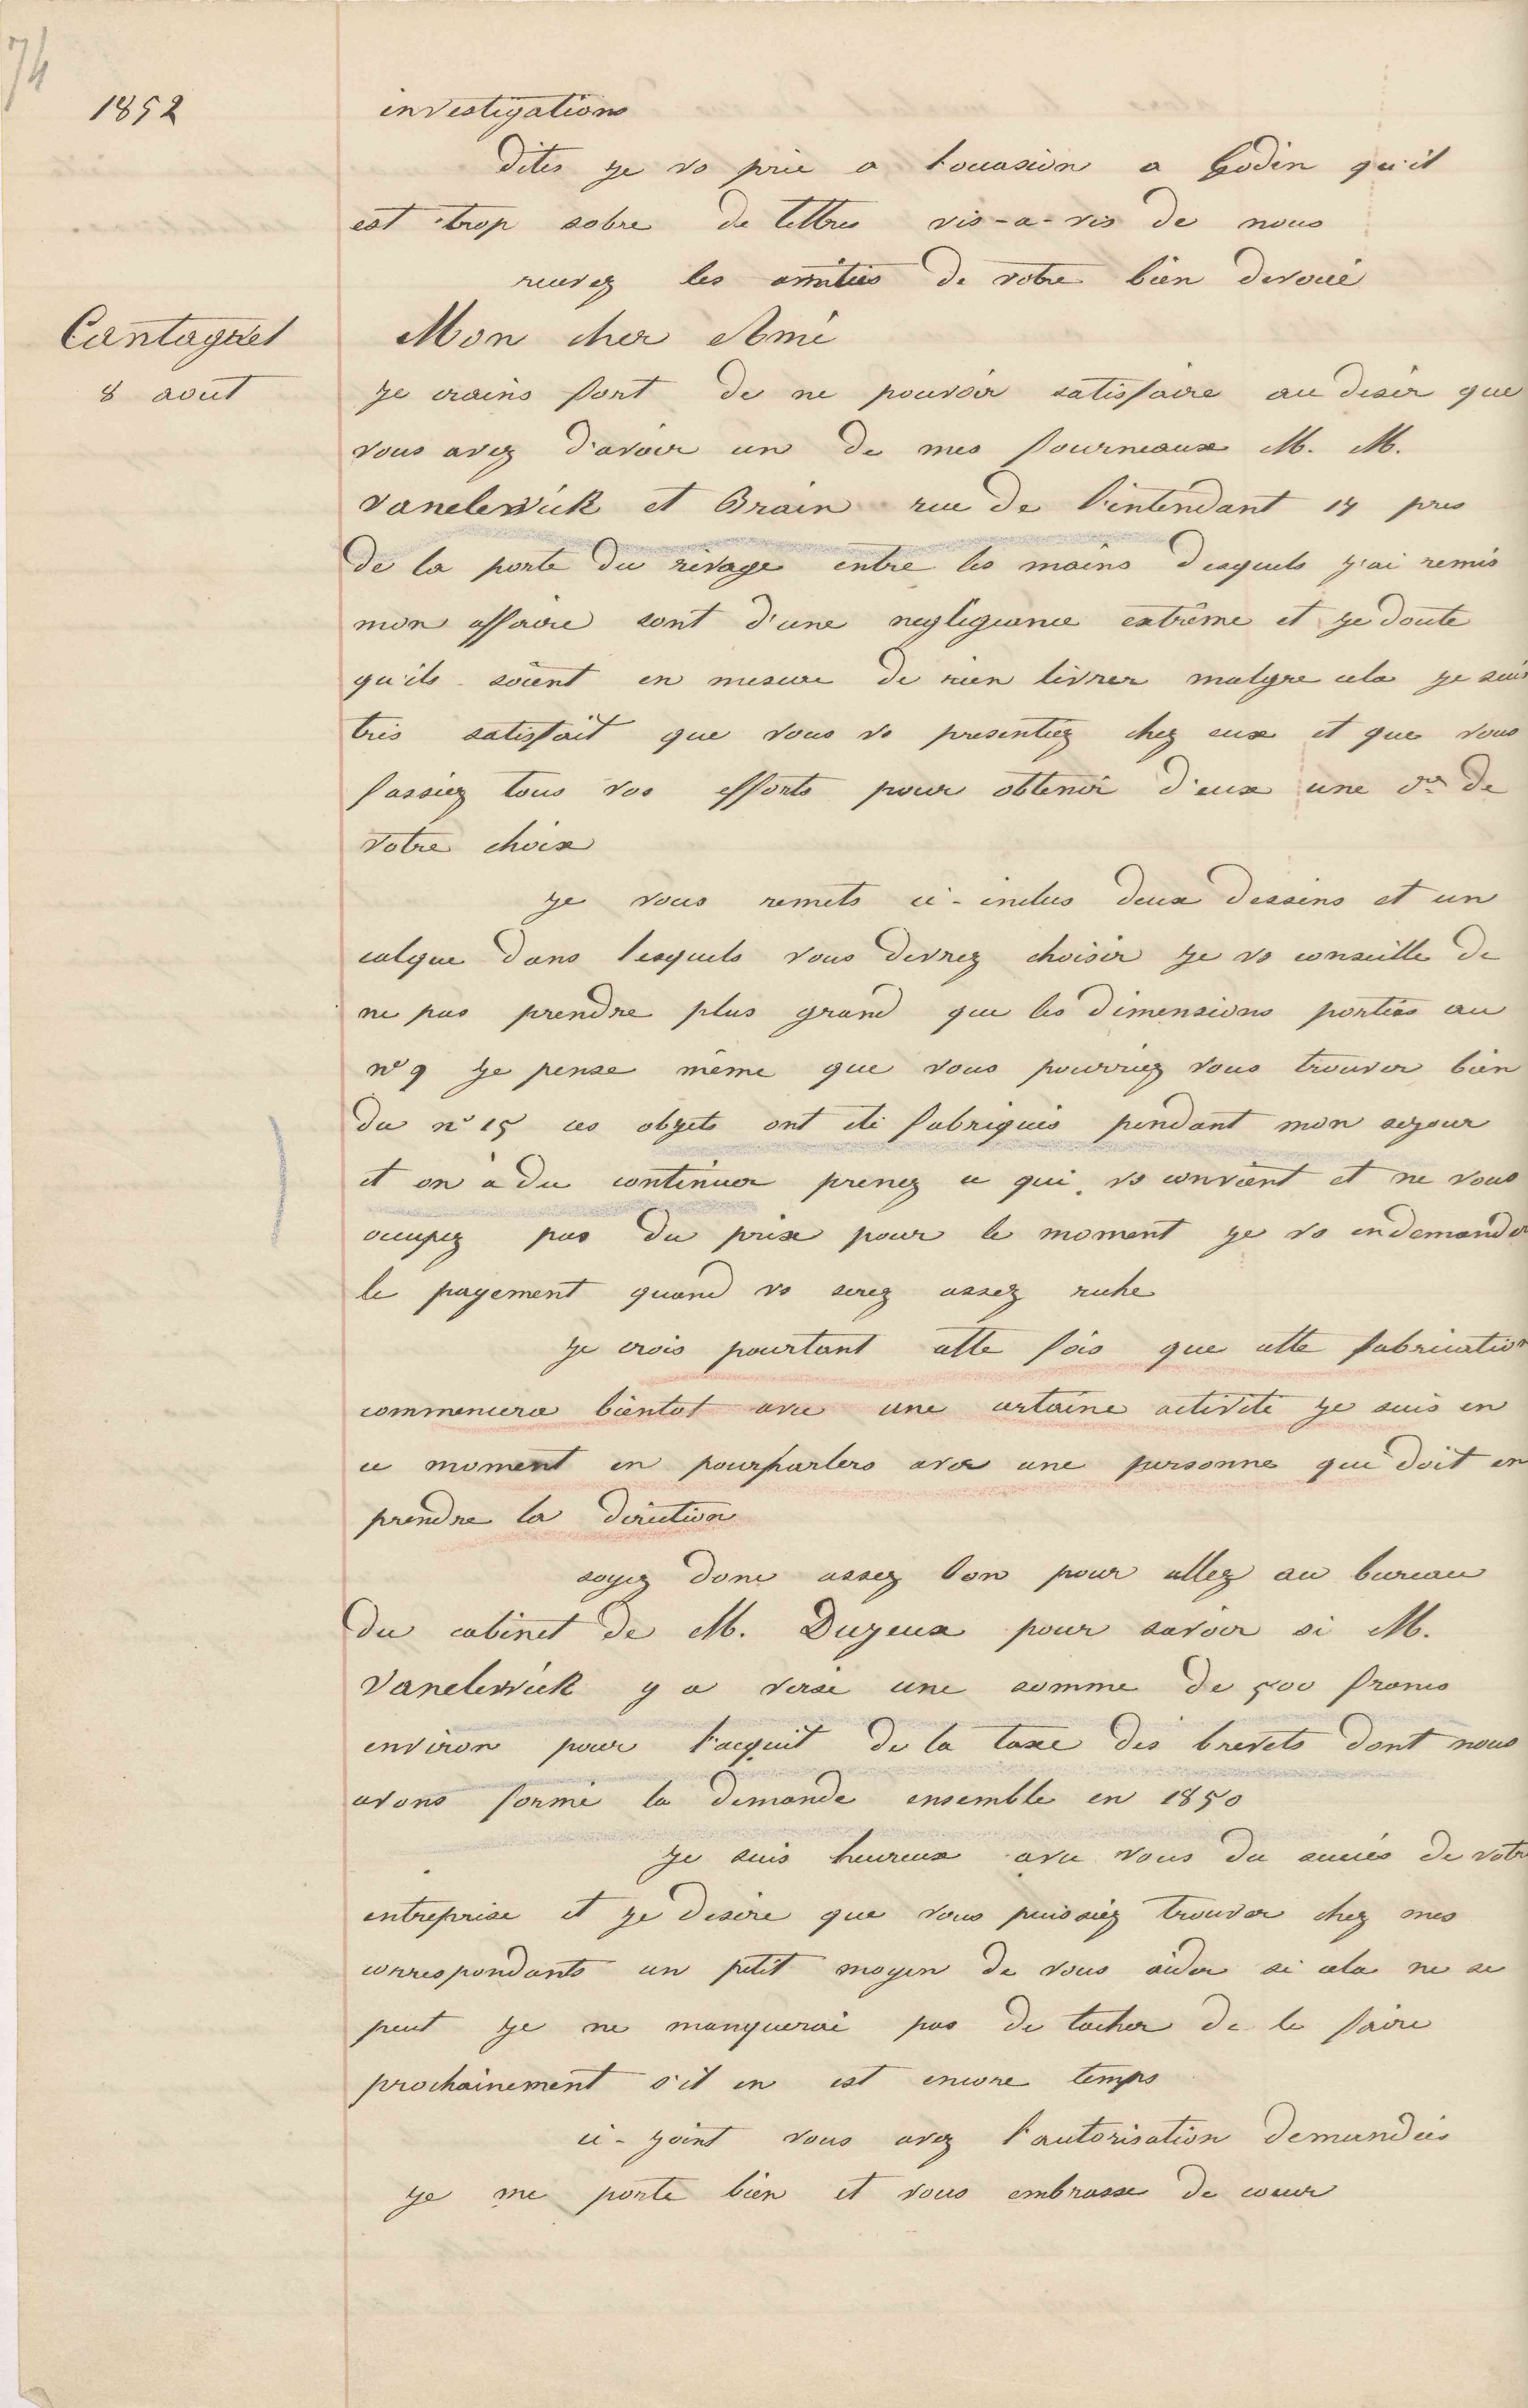 74
1852
investigations
dites je vs prie a l'occasion a Godin qu'il
est trop sobre de lettres vis-a-vis de nous
recevez les amitiés de votre bien devoué
Cantagrel
8 aout
Mon cher Ami
je crains fort de ne pouvoir satisfaire au desir que
vous avez d'avoir un de mes fourneaux M. M.
Vanelewick et Brain rue de l'intendant 14 pres
de la porte du rivage entre les mains desquels j'ai remis
mon affaire sont d'une negligeance extrême et je doute
qu'ils soient en mesure de rien livrer malgre cela je suis
très satisfait que vous vs presentiez chez eux et que vous
fassiez tous vos efforts pour obtenir d'eux une de
votre choix
je vous remets ci-inclus deux dessins et un
calque dans lesquels vous devrez choisir je vs conseille de
ne pas prendre plus grand que les dimensions portées au
n° 9 je pense même que vous pourriez vous trouver bien
du n° 15 ces objets ont été fabriqués pendant mon sejour
et on a du continuer prenez ce qui vs convient et ne vous
occupez pas du prix pour le moment je vs en demander
le payement quand vs serez assez riche
je crois pourtant cette fois que cette fabrication
commencera bientot avec une certaine activité je suis en
ce moment en pourparlers avec une personne qui doit en
prendre la direction
soyez donc assez bon pour allez au bureau
du cabinet de M. Dugeux pour savoir si M.
Vanelewick y a versé une somme de 500 francs
environ pour l'acquit de la taxe des brevets dont nous
avons formé la demande ensemble en 1850
je suis heureux avec vous du succès de votre
entreprise et je desire que vous puissiez trouver chez mes
correspondants un petit moyen de vous aider si cela ne se
peut je ne manquerai pas de tacher de le faire
prochainement s'il en est encore temps
ci-joint vous avez l'autorisation demandées
je me porte bien et vous embrasse de coeur